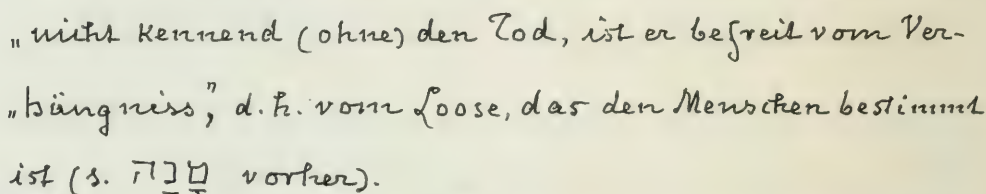 „nicht kennend (ohne) den Tod, ist er befreit vom Ver-
„hängniss”, d. h. vom Loose, das den Menschen bestimmt
ist (s. מָנָה vorher).